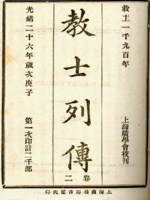 救主一千九百年
上海廣學會校刊
教士列傳
卷二
光緒二十六年歲次庚子
第一次印計二千部